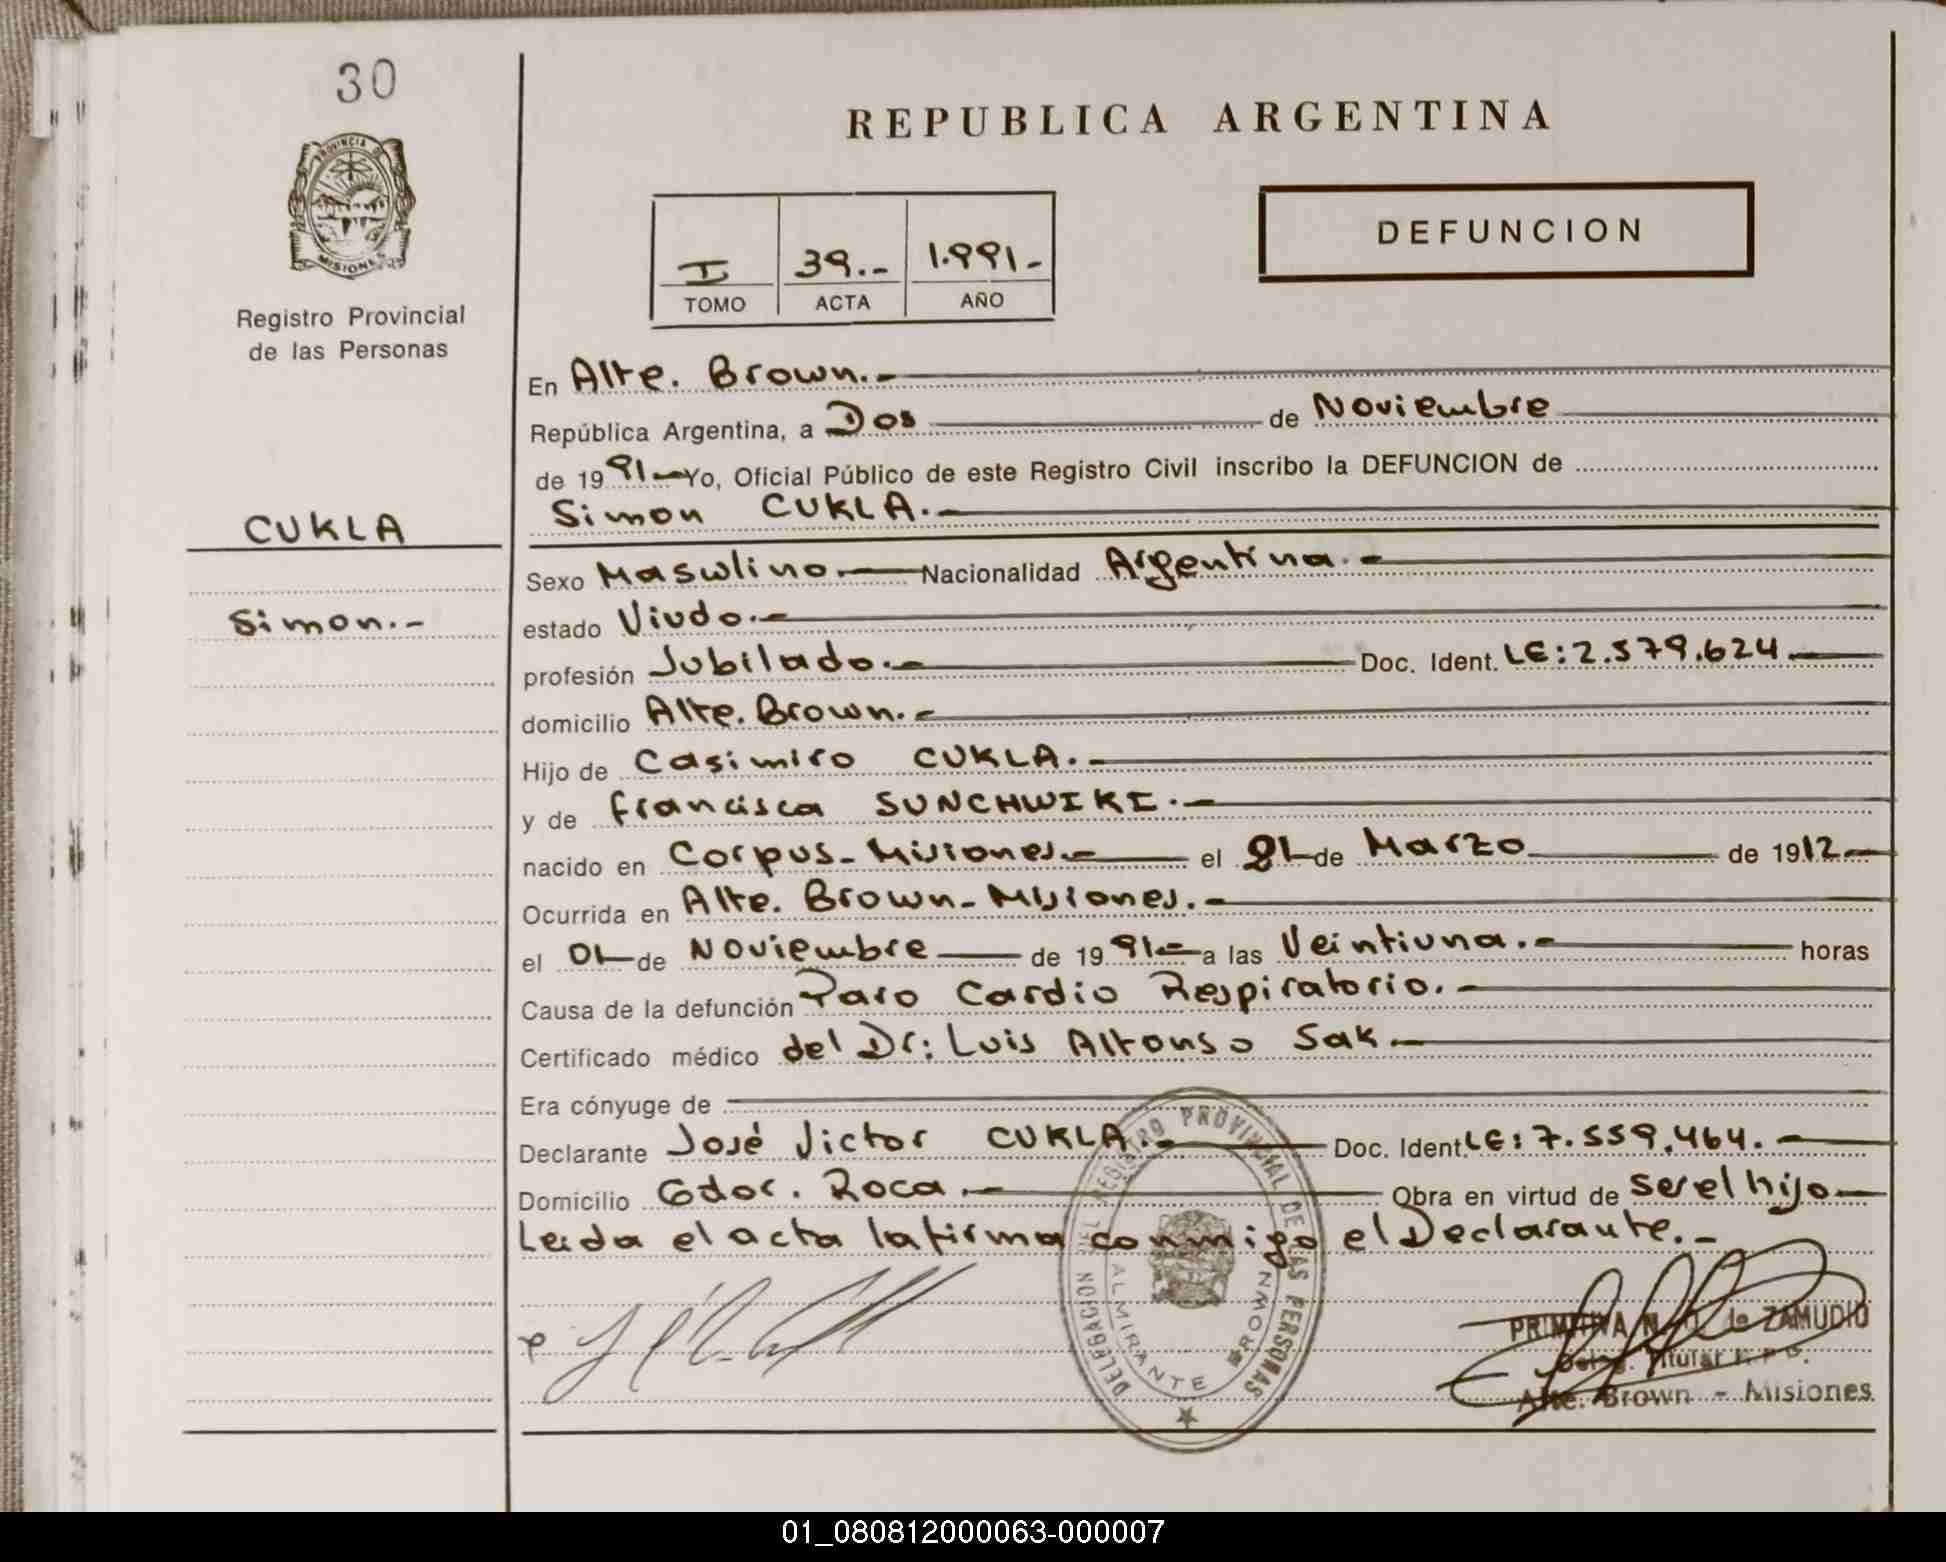 30
PROVINCIA DE
MISIONES
Registro Provincial
de las Personas
CUKLA
Simon.-
REPUBLICA ARGENTINA
I 39.- 1.991.-
TOMO ACTA AÑO
DEFUNCION
En Alte. Brown.-
República Argentina, a Dos de Noviembre
de 1991- Yo, Oficial Público de este Registro Civil inscribo la DEFUNCION de
Simon CUKLA.-
Sexo Masculino.- Nacionalidad Argentina.-
estado Viudo.-
profesión Jubilado.- Doc. Ident. LE: 2.579.624
domicilio Alte. Brown.-
Hijo de Casimiro CUKLA.-
y de Francisca SUNCHWIKI.-
nacido en Corpus- Misiones.- el de Marzo de 1912-
Ocurrida en Alte. Brown- Misiones.-
el 01- de Noviembre de 1991- a las Veintiuna.- horas
Causa de la defunción Paro Cardio Respiratorio.-
Certificado médico del Dr: Luis Alfonso Sak.-
Era cónyuge de
Declarante José Victor CUKLA.- Doc. Ident. LE: 7.559.464.-
Domicilio Gdor. Roca.- Obra en virtud de ser el hijo-
Leida el acta la firma conmigo el Declarante.-
DELEGACION DEL REGISTRO PROVINCIAL DE LAS PERSONAS
ALMIRANTE BROWN
PRIMITIVA de ZAMUDIO
Deleg. Titular R.P.P.
Alte. Brown - Misiones
01_080812000063-000007